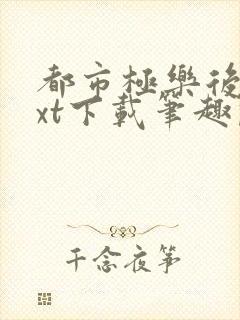 都市極樂後
xt下載筆趣
千念夜箏